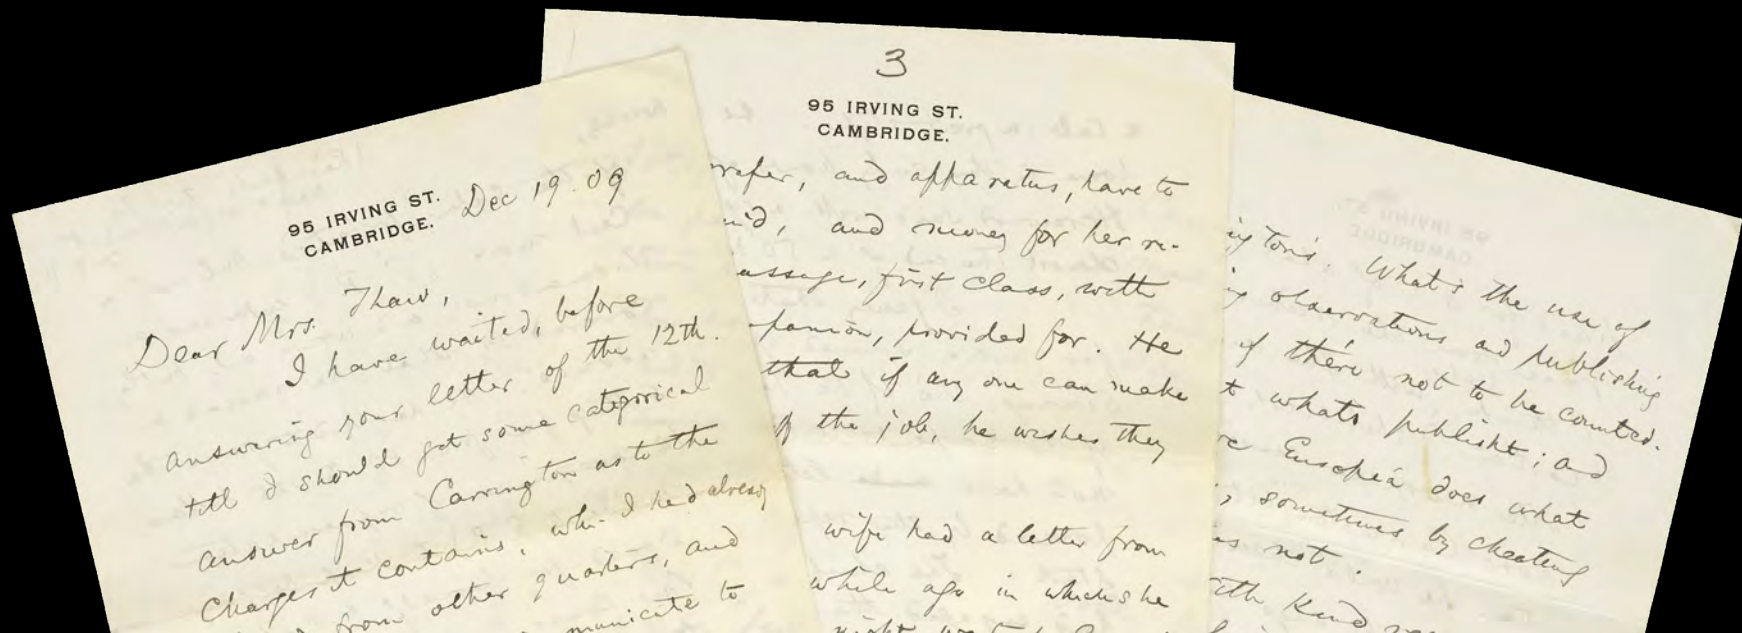 95 IRVING ST.
CAMBRIDGE.
Dec 19. 09
Dear Mrs. Thaw,
I have waited, before
answering your letter of the 12th.
till I should get some categorical
answer from Carrington as to the
charges it contains, wh. I had already
from other quarters, and
municate to
3
95 IRVING ST.
CAMBRIDGE.
rafer, and apparatus, have to
aid, and money for her re-
assage, first class, with
panion, provided for. He
that if any one can make
of the job, he wishes they
wife had a letter from
while ago in which she
might
ington's. What's the use of
ing observations and publishing
if there not to be counted.
t whats publisht; and
Europia does what
, sometimes by cheating
es not.
ith kind